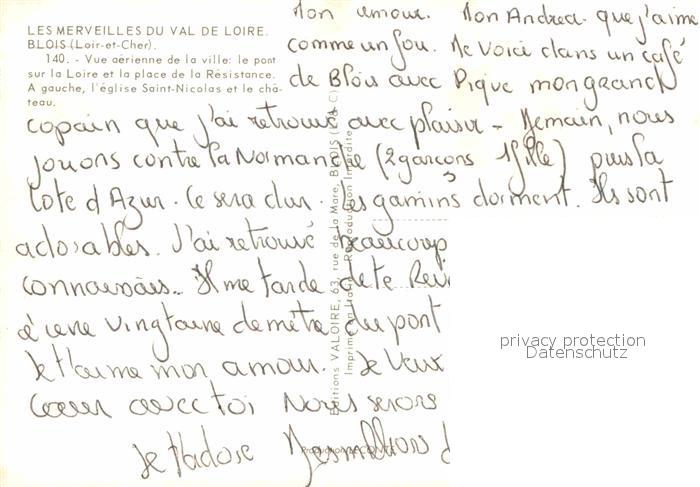 LES MERVEILLES DU VAL DE LOIRE.
BLOIS (Loir-et-Cher).
140. - Vue aérienne de la ville: le pont
sur la Loire et la place de la Résistance.
A gauche, l'église Saint-Nicolas et le châ-
teau.
Mon amour. Mon Andrea que j'aime
comme un fou. Me voici dans un café
de Blois avec Pique mon grand
copain que j'ai retrouvé avec plaisir - Demain, nous
jouons contre la Normandie (2 garçons 1 fille) puis la
Côte d'Azur. Ce sera dur. Les gamins dorment. Ils sont
adorables. J'ai retrouvé beaucoup
connaissais.. Il me tarde de te Rev
à une vingtaine de mètre du pont
Je t'aime mon amour. Je Veux
Cœur avec toi Nous serons
Je t'adore
Editions VALOIRE, 63, rue de la Mare, BLOIS (L.&C.)
Imprimé en Reproduction Interdite
privacy protection
Datenschutz